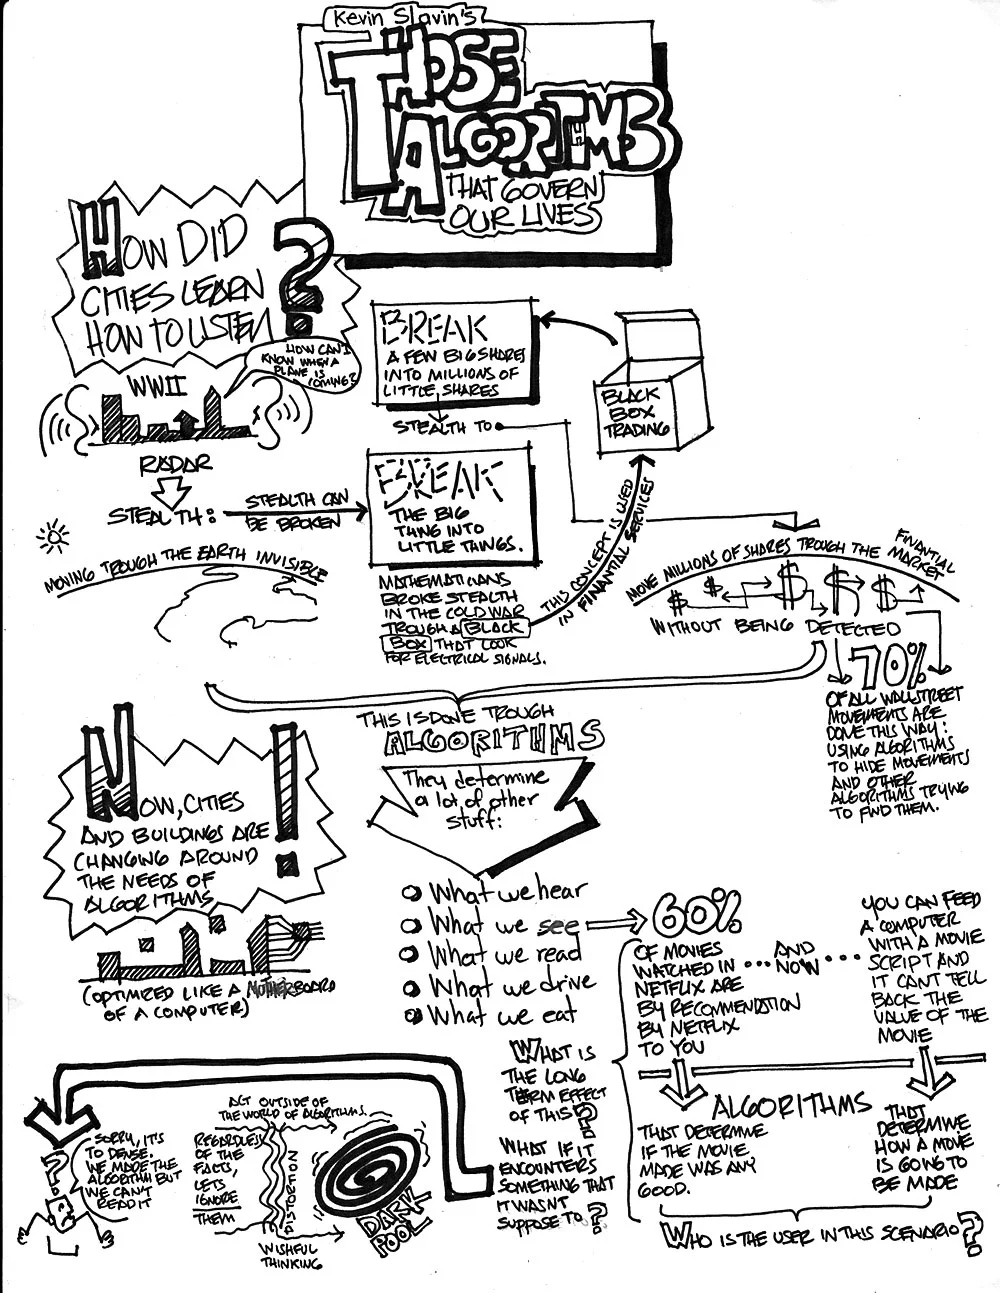 Kevin Slavin's
THOSE
ALGORITHMS
THAT GOVERN
OUR LIVES
HOW DID
CITIES LEARN
HOW TO LISTEN
?
HOW CAN I
KNOW WHEN A
PLANE IS
COMING?
WWII
RADAR
STEALTH:
STEALTH CAN
BE BROKEN
MOVING TROUGH THE EARTH INVISIBLE
BREAK
A FEW BIG SHARES
INTO MILLIONS OF
LITTLE SHARES
STEALTH TO
BLACK
BOX
TRADING
BREAK
THE BIG
THING INTO
LITTLE THINGS.
MATHEMATICIANS
BROKE STEALTH
IN THE COLD WAR
TROUGH A BLACK
BOX THAT LOOK
FOR ELECTRICAL SIGNALS.
THIS CONCEPT IS USED
IN FINANTIAL SERVICES
MOVE MILLIONS OF SHARES TROUGH THE FINANTIAL
MARKET
$ $ $ $ $
WITHOUT BEING DETECTED
70%
OF ALL WALLSTREET
MOVEMENTS ARE
DONE THIS WAY:
USING ALGORITHMS
TO HIDE MOVEMENTS
AND OTHER
ALGORITHMS TRYING
TO FIND THEM.
THIS IS DONE TROUGH
ALGORITHMS
They determine
a lot of other
stuff:
NOW, CITIES
AND BUILDINGS ARE
CHANGING AROUND
THE NEEDS OF
ALGORITHMS
!
(OPTIMIZED LIKE A MOTHERBOARD
OF A COMPUTER)
What we hear
What we see
What we read
What we drive
What we eat
60%
OF MOVIES
WATCHED IN
NETFLIX ARE
BY RECOMMENDATION
BY NETFLIX
TO YOU
AND
NOW
YOU CAN FEED
A COMPUTER
WITH A MOVIE
SCRIPT AND
IT CAN'T TELL
BACK THE
VALUE OF THE
MOVIE
ALGORITHMS
THAT DETERMINE
IF THE MOVIE
MADE WAS ANY
GOOD.
THAT
DETERMINE
HOW A MOVE
IS GOING TO
BE MADE
WHO IS THE USER IN THIS SCENARIO?
WHAT IS
THE LONG
TERM EFFECT
OF THIS?
WHAT IF IT
ENCOUNTERS
SOMETHING THAT
IT WASN'T
SUPPOSE TO?
ACT OUTSIDE OF
THE WORLD OF ALGORITHMS.
REGARDLESS
OF THE
FACTS,
LETS
IGNORE
THEM
DISTORTION
WISHFUL
THINKING
DARK
POOL
?
SORRY, IT'S
TO DENSE.
WE MADE THE
ALGORITHM BUT
WE CAN'T
READ IT